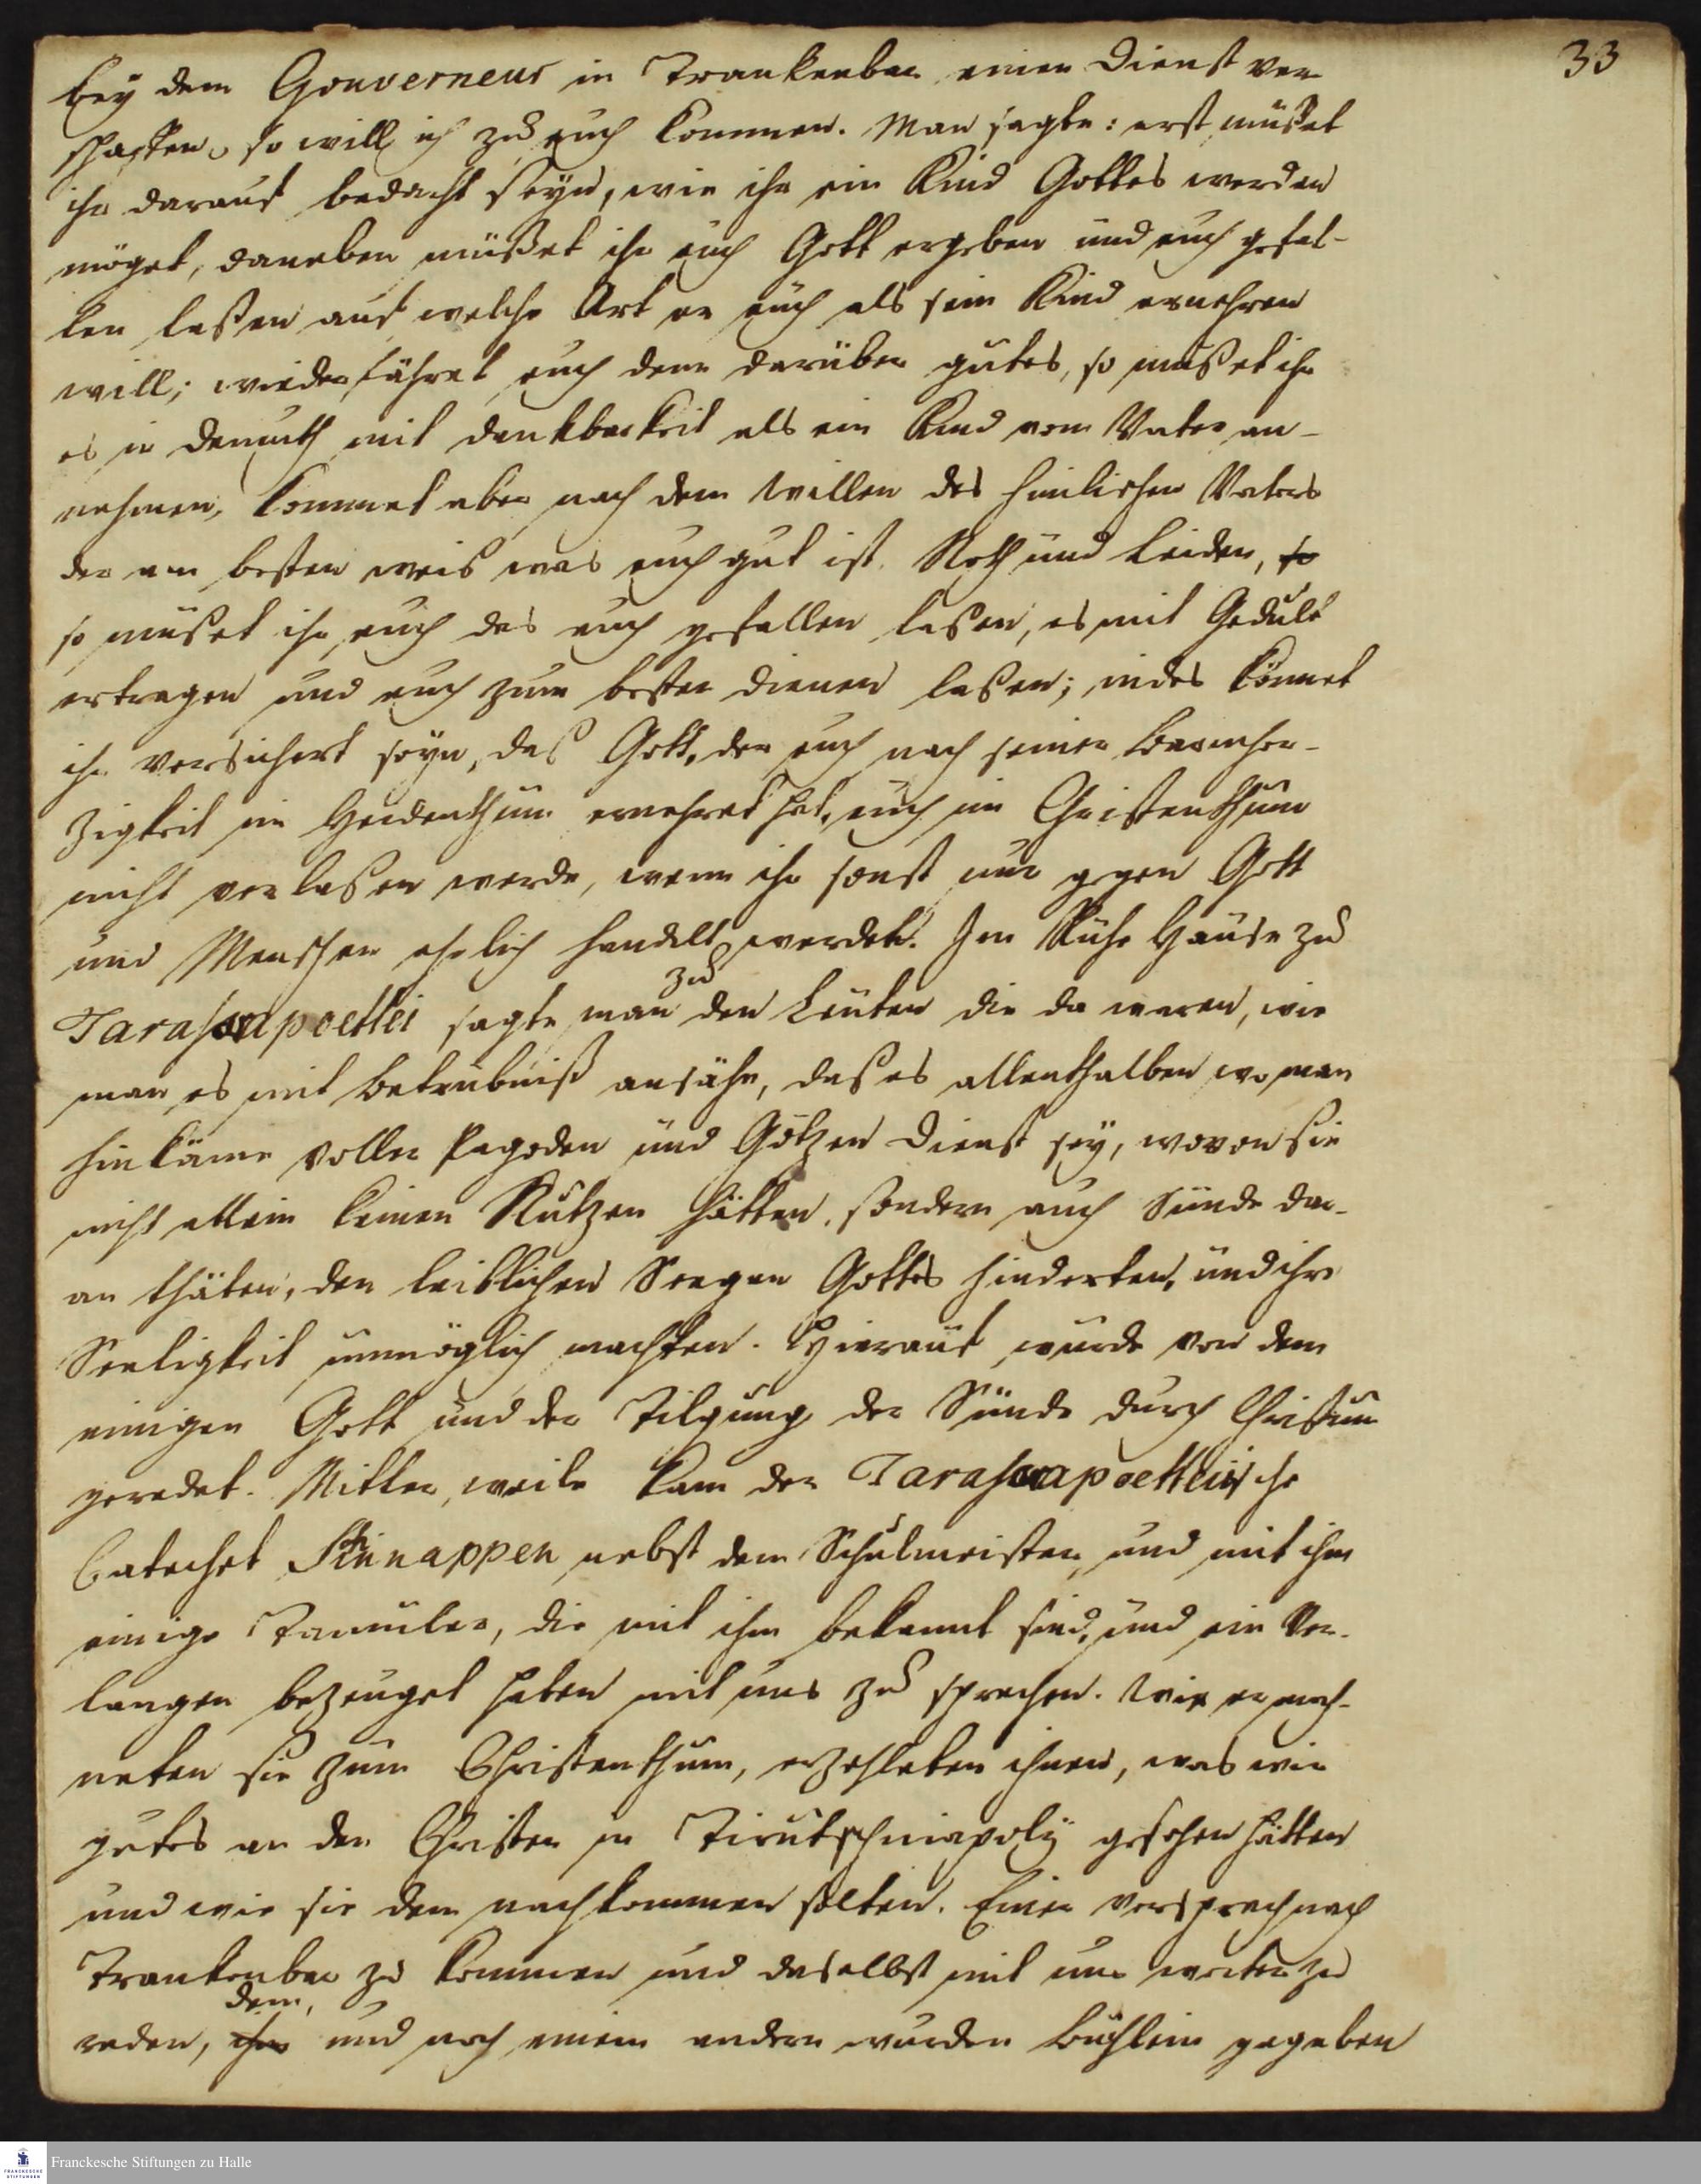 33
bey dem Gouverneur in Trankenbar einen Dienst ver
schaffen, so will ich zu euch kommen. Man sagte: erst müßet
ihr darauf bedacht seyn, wie ihr ein Kind Gottes werden
möget, daneben müßet ihr euch Gott ergeben und euch gefal-
len laßen auf welche Art er euch als sein Kind ernehren
will; wiederfähret euch denn darüber gutes, so müßet ihr
es in Demuth mit dankbarkeit als ein Kind vom Vater an-
nehmen, kommet aber nach dem Willen des himlischen Vaters
der am besten weis was euch gut ist, Noth und Leiden, so
so müßet ihr euch das auch gefallen laßen, es mit Gedult
ertragen und euch zum besten dienen laßen; indes könnet
ihr versichert seyn, daß Gott, der euch nach seiner Barmher-
zigkeit im Heidenthum ernehret hat, euch im Christenthum
nicht verlaßen werde, wenn ihr sonst nur gegen Gott
und Menschen ehrlich handeln werdet. Im Ruhe Hause zu
Tarasurapoettei sagte man zu den Leuten die da waren, wie
man es mit Betrübniß ansähe, daß es allenthalben wo man
hinkäme voller Pagoden und Götzen Dienst sey, wovon sie
nicht allein keinen Nutzen hätten, sondern auch Sünde dar-
an thäten, den leiblichen Seegen Gottes hinderten, und ihre
Seeligkeit unmöglich machten. Hierauf wurde von dem
einigen Gott und der Tilgung der Sünde durch Christum
geredet. Mittler weile kam der Tarasurapoetteische
Catechet Schinappen nebst dem Schulmeister, und mit ihm
einige Tamuler, die mit ihm bekannt sind, und ein Ver-
langen bezeuget haben mit uns zu sprechen. Wir ermah-
neten sie zum Christenthum, erzehleten ihnen, was wir
gutes an den Christen in Tirutschinapoly gesehen hätten
und wie sie dem nachkommen solten. Einer versprach nach
Trankenbar zu kommen und daselbst mit uns weiter zu
reden, ihm dem, und noch einem andern wurden Büchlein gegeben
Franckesche Stiftungen zu Halle